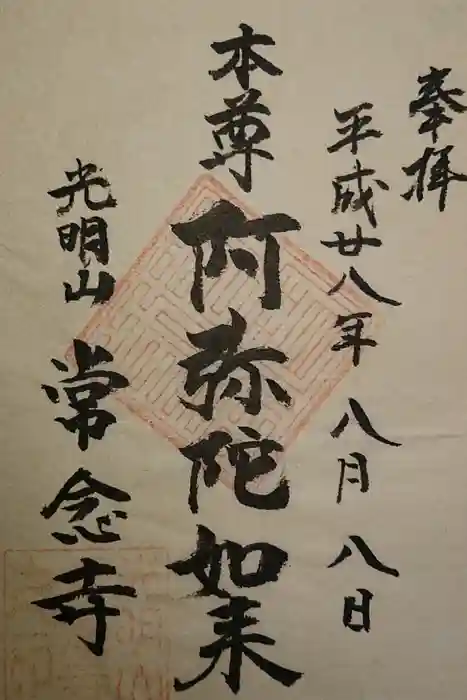 奉拝
平成廿八年八月八日
本尊阿弥陀如来
光明山常念寺